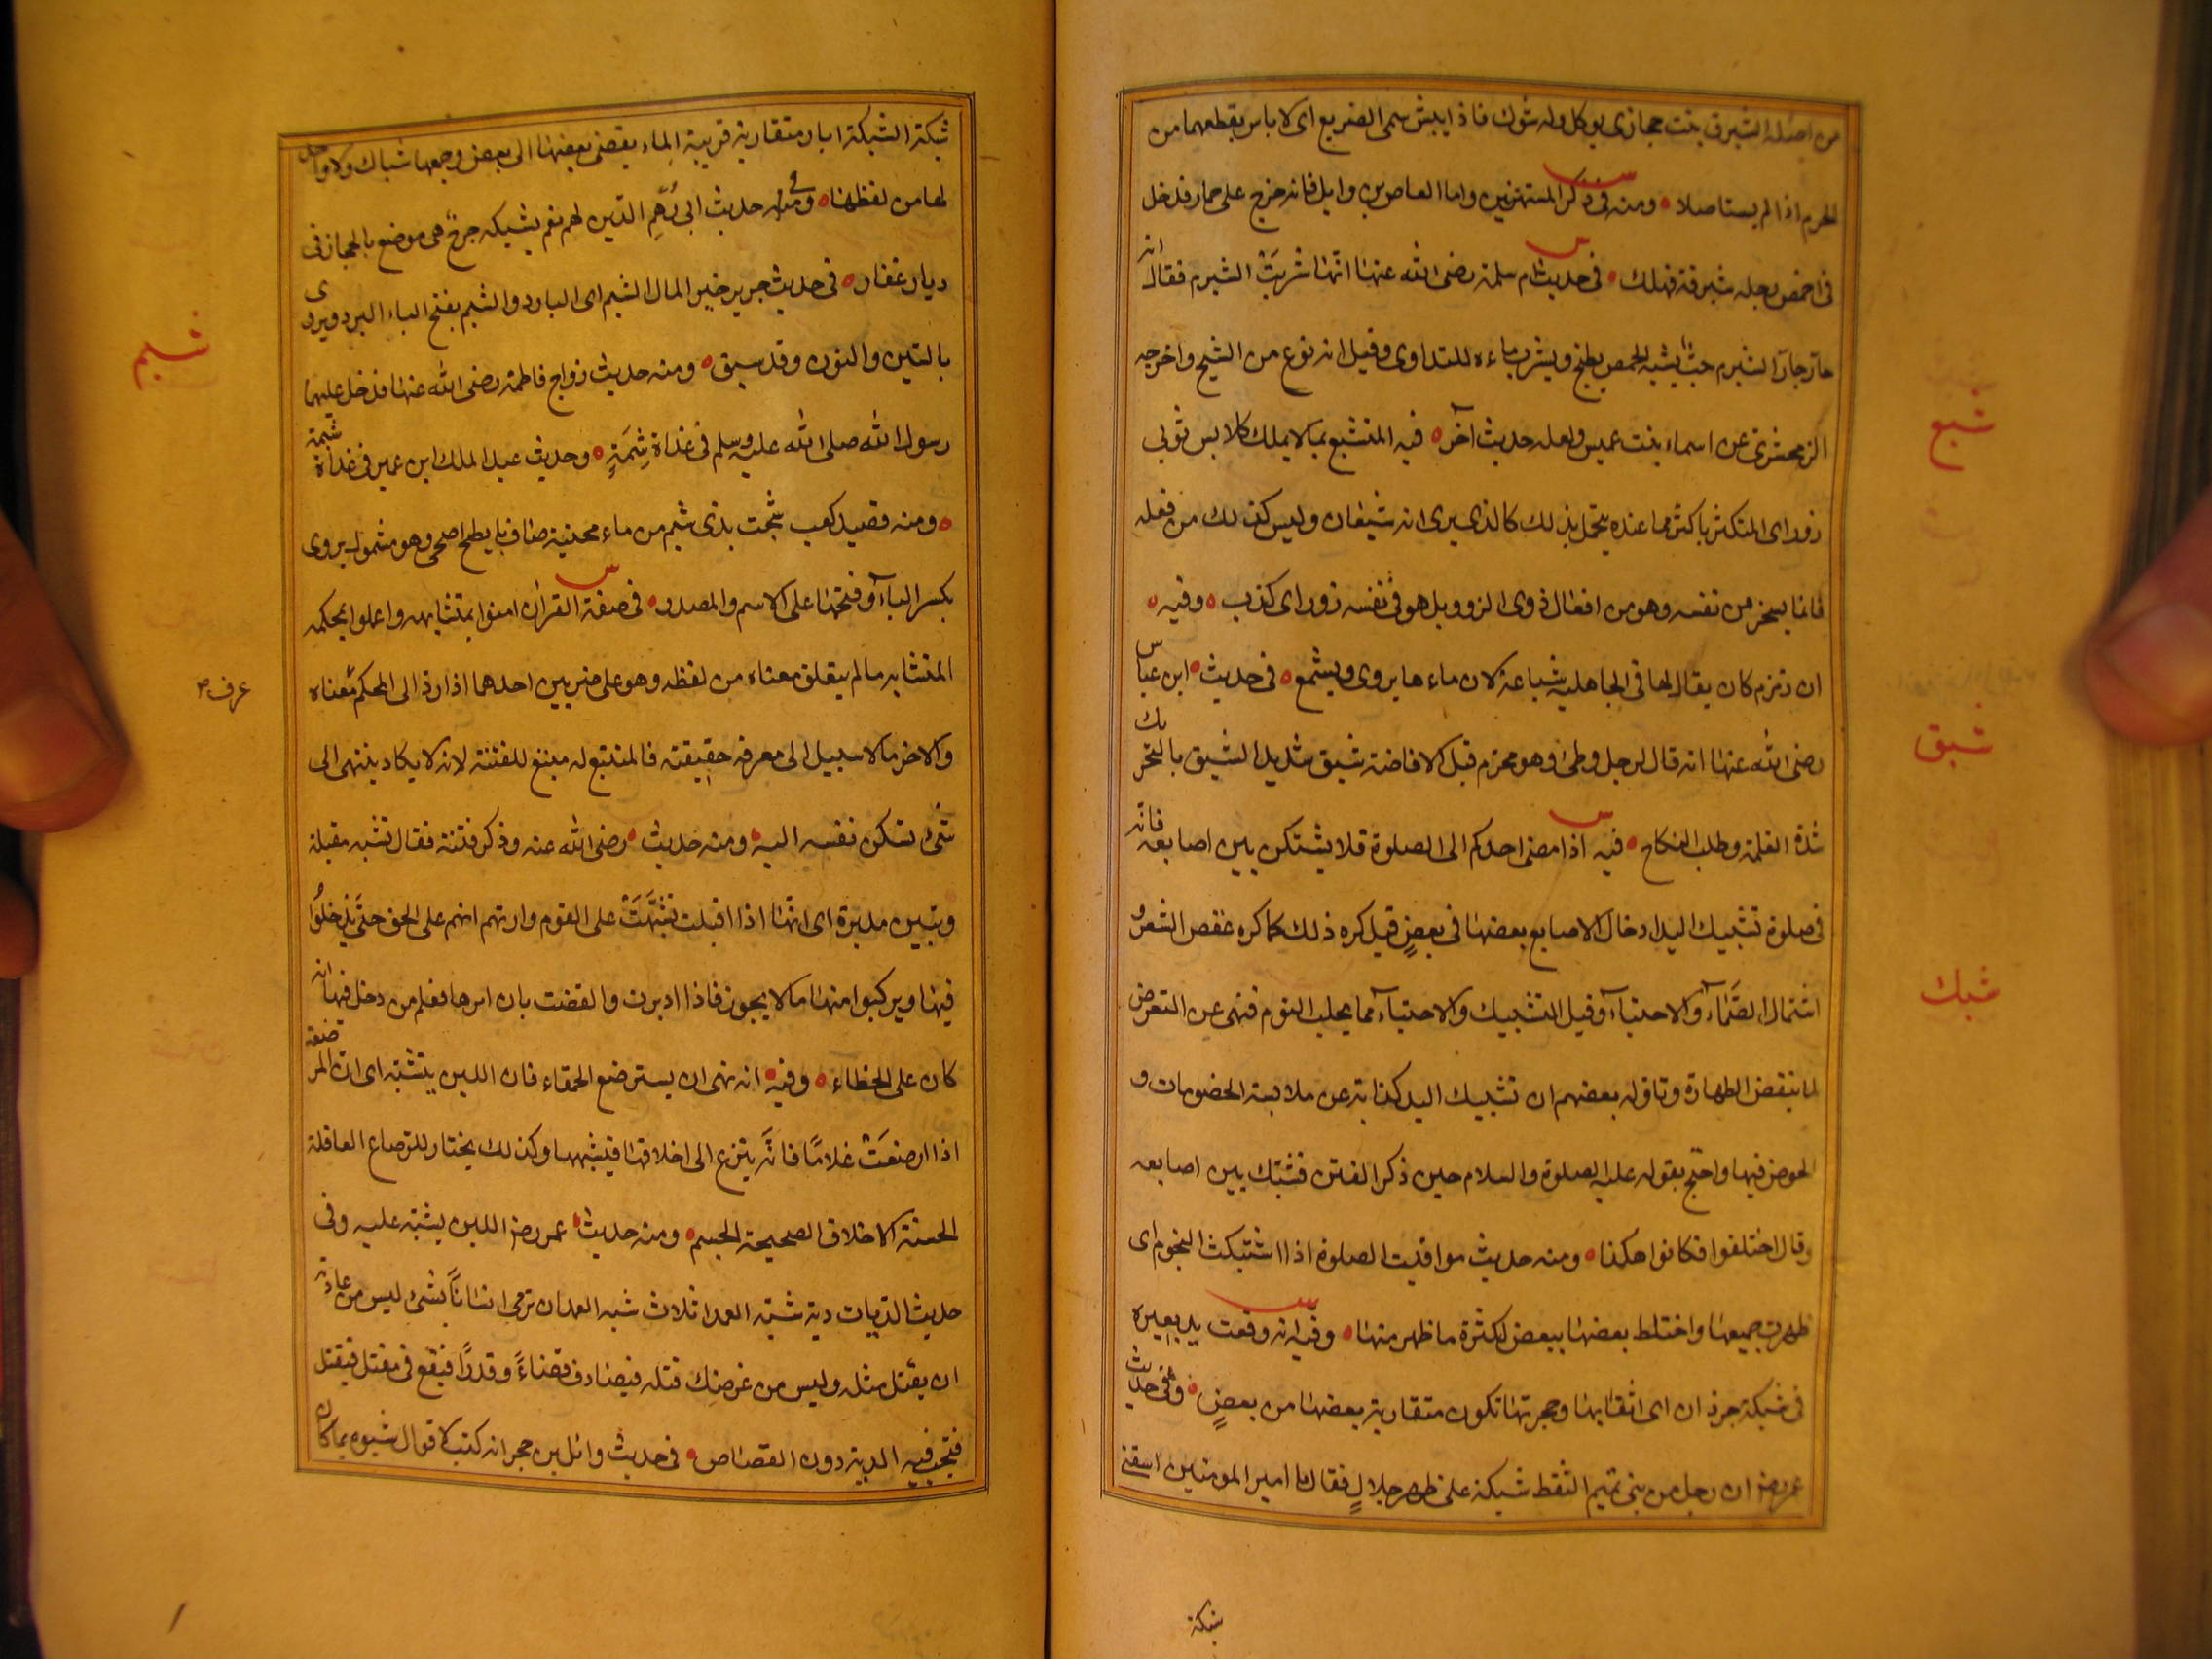 من اصله الشبرق نبت حجازى يوكل وله شوك فاذا يبس سمى الضريع اى لا باس بقطعهما من
الحرم اذا لم يستاصلا ومنه فى ذكر المستهزئين واما العاص بن وايل فانه خرج على حمار فدخل
فى اخمص رجله شبرقة فهلك فى حديث ام سلمة رضى الله عنها انها شربت الشبرم فقال انه
حار جار الشبرم حب يشبه الحمص يطبخ ويشرب ماءه للتداوى وقيل انه نوع من الشيح واخرجه
شبع
الزمخشرى عن اسماء بنت عميس ولعله حديث آخر فيه المتشبع بما لا يملك كلابس ثوبى
زور اى المتكثر باكثر مما عنده يتجمل بذلك كالذى يرى انه شبعان وليس كذلك من فعله
فانما يسخر من نفسه وهو من افعال ذوى الزور وبل هو فى نفسه زور اى كذب وفيه
ان زمزم كان يقال لها فى الجاهلية شباعة لان ماءها يروى ويشبع فى حديث ابن عباس
شبق
رضى الله عنها انه قال لرجل وطئ وهو محرم قبل الافاضة شبق شديد الشبق بالتحريك
شدة الغلمة وطلب النكاح فيه اذا مضى احدكم الى الصلوة فلا يشتكن بين اصابعه فانه
فى صلوة تشبيك اليد ادخال الاصابع بعضها فى بعض قيل كره ذلك كما كره عقص الشعر و
شبك
اشتمال الصماء والاحتباء وقيل التشبيك والاحتباء مما يجلب النوم فنهى عن التعرض
لما ينقض الطهارة وتاوله بعضهم ان تشبيك اليد كناية عن ملابسة الخصومات و
الخوض فيها واحتج بقوله عليه الصلوة والسلام حين ذكر الفتن فشبك بين اصابعه
وقال اختلفوا فكانوا هكذا ومنه حديث مواقيت الصلوة اذا اشتبكت النجوم اى
ظهرت جميعها واختلط بعضها ببعض لكثرة ما ظهر منها وفيه انه وقعت يد بعيره
فى شبكة جرذان اى انقابها وحجرتها تكون متقاربة بعضها من بعض وفى حديث
عمر رضى ان رجل من بنى تميم التقط شبكة على ظهر جلال فقال يا امير المومنين اسقنى
شبكة
شبكة الشبكة ابار متقاربة قريبة الماء يفضى بعضها الى بعض وجمعها شباك ولا واحد
لها من لفظها وفى حديث ابى رهم الذين لهم نعم بشبكة جرح هى موضع بالحجاز فى
ديار غفار فى حديث جرير خير المال الشبم اى البارد والشبم بفتح الباء البرد ويروى
شبم
بالسين والنون وقد سبق ومنه حديث زواج فاطمة رضى الله عنها فدخل عليهما
رسول الله صلى الله عليه وسلم فى غداة شبمة وحديث عبد الملك ابن عمير فى غداة شبمة
ومنه قصيد كعب شجت بذى شبم من ماء محنية صاف بابطح اضحى وهو مشمول يروى
بكسر الباء وفتحها على الاسم والمصدر فى صفة القرآن امنوا بمتشابهه واعملوا بمحكمه
المتشابه ما لم يتعلق معناه من لفظه وهو على ضربين احدهما اذا رد الى المحكم معناه
عرف
والاخر ما لا سبيل الى معرفة حقيقته فالمتتبع له مبتغ للفتنة لانه لا يكاد ينتهى الى
شئ تسكن نفسه اليه ومنه حديث رضى الله عنه وذكر فتنة فقال تشبه مقبلة
وتبين مدبرة اى انها اذا اقبلت تشبهت على القوم وارتهم انهم على الحق حتى يدخلوا
فيها ويركبوا منها ما لا يجوز فاذا ادبرت وانقضت بان امرها فعلم من دخل فيها انه
كان على الخطاء وفيه انه نهى ان يسترضع الحمقاء فان اللبن يتشبه اى ان المرضعة
اذا ارضعت غلاما فانه ينزع الى اخلاقها فيشبهها وكذلك يختار للرضاع العاقلة
الحسنة الاخلاق الصحيحة الجسم ومنه حديث عمر رضى اللبن يشبه عليه وفى
حديث الديات دية شبه العمد اثلاث شبه العمد ان ترمى انسانا بشئ ليس من عادته
ان يقتل مثله وليس من غرضك قتله فيصادف قضاء وقدرا فيقع فى مقتل فيقتل
فتجب فيه الدية دون القصاص فى حديث وائل بن حجر انه كتب لاقوال شبوه بما كان